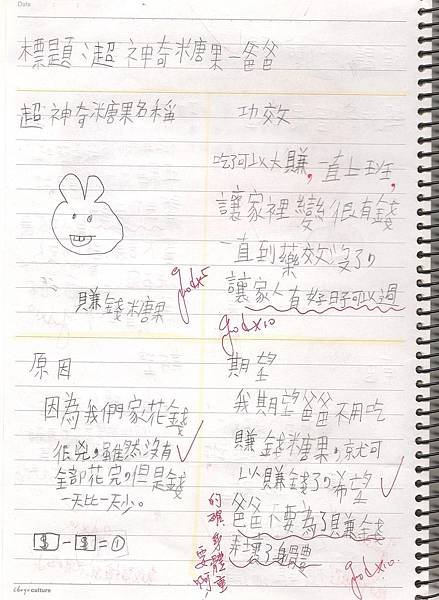 Date
標題：超神奇糖果—爸爸
超神奇糖果名稱
賺錢糖果
good x5
功效
吃了可以大賺，一直上班，
讓家裡變很有錢
一直到藥效沒了，
讓家人有好日子可以過
good x10
原因
因為我們家花錢
很兇，雖然沒有
全部花完，但是錢
一天比一天少。
$ - $ = 1
期望
我期望爸爸不用吃
賺錢糖果，就可
以賺錢了，希望
爸爸不要為了賺錢
弄壞了身體
good x10.
的確
身體
重要
啊
culture